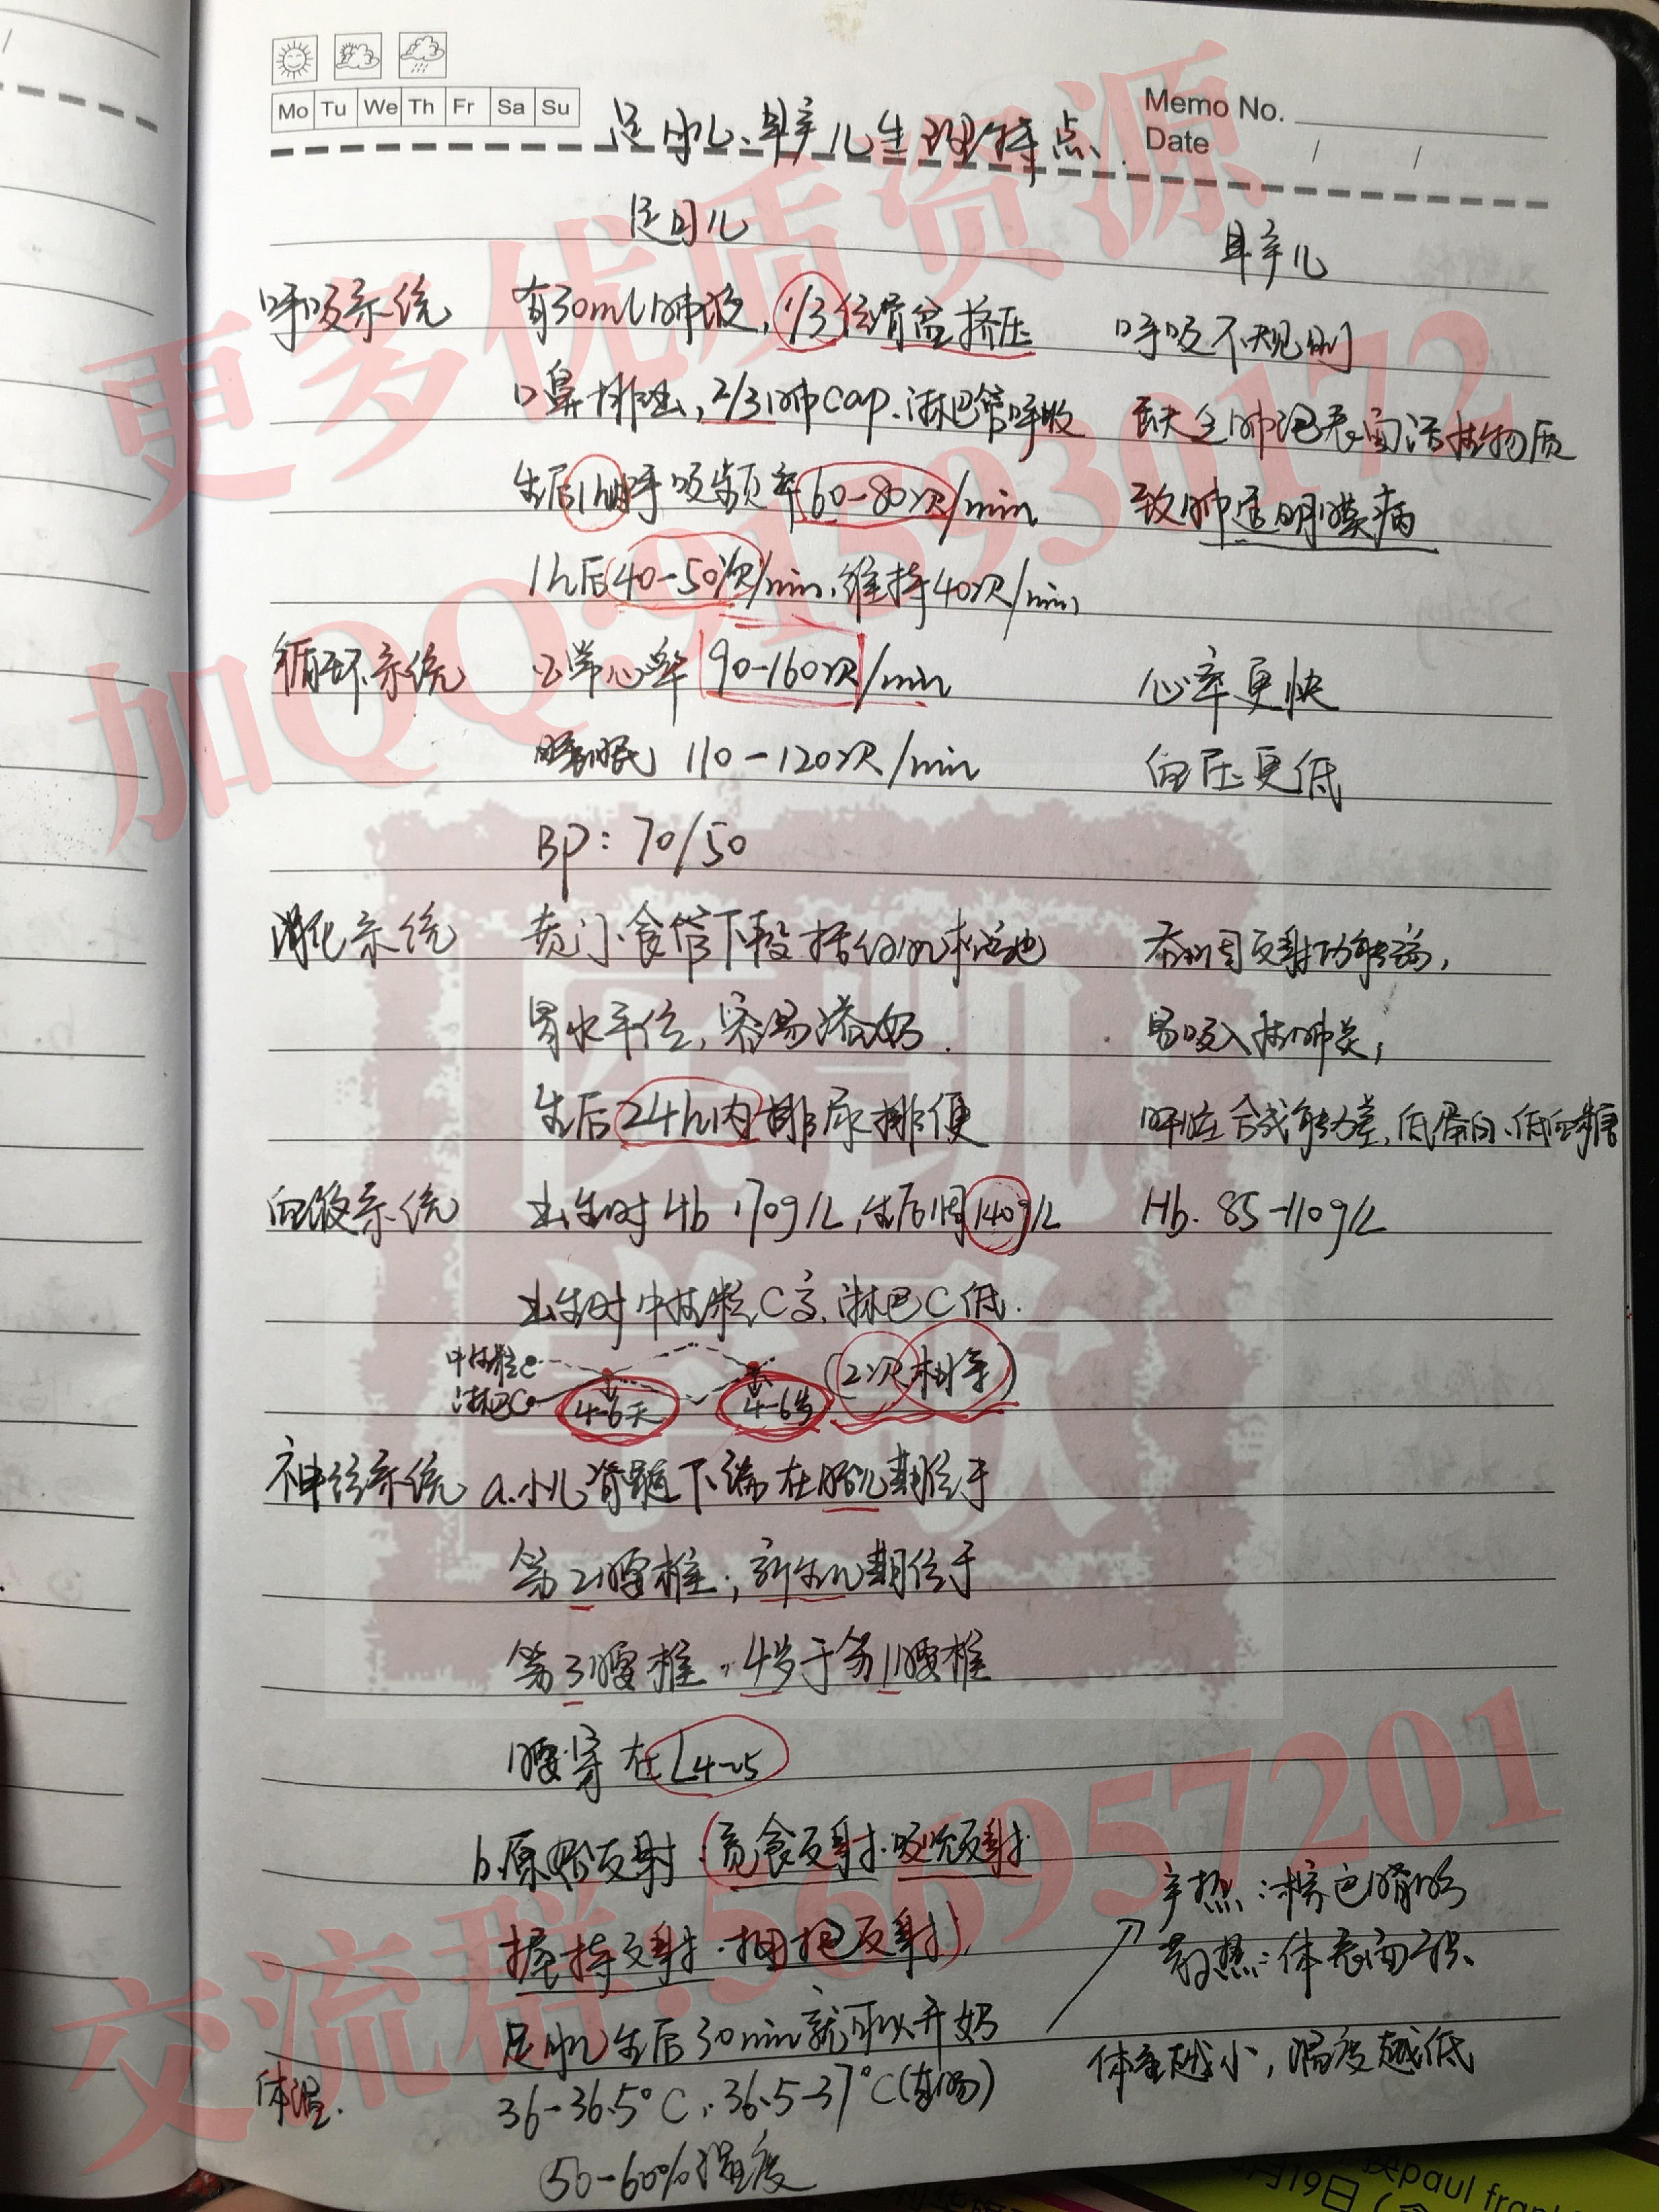 Mo Tu We Th Fr Sa Su
Memo No.
Date / /
足月儿、早产儿生理特点.
足月儿 早产儿
呼吸系统 有30ml肺液, 1/3经骨盆挤压 呼吸不规则
口鼻排出, 2/3肺cap.淋巴管吸收 缺乏肺泡表面活性物质
生后1h内呼吸频率60-80次/min 致肺透明膜病
1h后40-50次/min,维持40次/min,
循环系统 正常心率 90-160次/min 心率更快
睡眠 110-120次/min 血压更低
BP: 70/50
消化系统 贲门.食管下段括约肌松弛 吞咽反射功能弱,
胃水平位, 容易溢奶. 易吸入性肺炎,
生后24h内排尿排便 肝脏合成能力差,低蛋白.低血糖
血液系统 出生时Hb 170g/L,生后1周140g/L Hb. 85-110g/L
出生时中性粒C高.淋巴C低.
中性粒C
淋巴C 4-6天 4-6岁 (2次相等)
神经系统 a.小儿脊髓下端在胎儿期位于
第2腰椎; 新生儿期位于
第3腰椎, 4岁于第1腰椎
腰穿在L4-5
b.原始反射 (觅食反射.吸吮反射.
握持反射.拥抱反射)
产热:棕色脂肪
散热:体表面积
足月儿生后30min就可以开奶
体重越小,温度越低
体温. 36-36.5°C. 36.5-37°C(直肠)
50-60%湿度
更多优质资源
加QQ:915930172
医凯
学歌
交流群:566957201
paul fran
月19日(